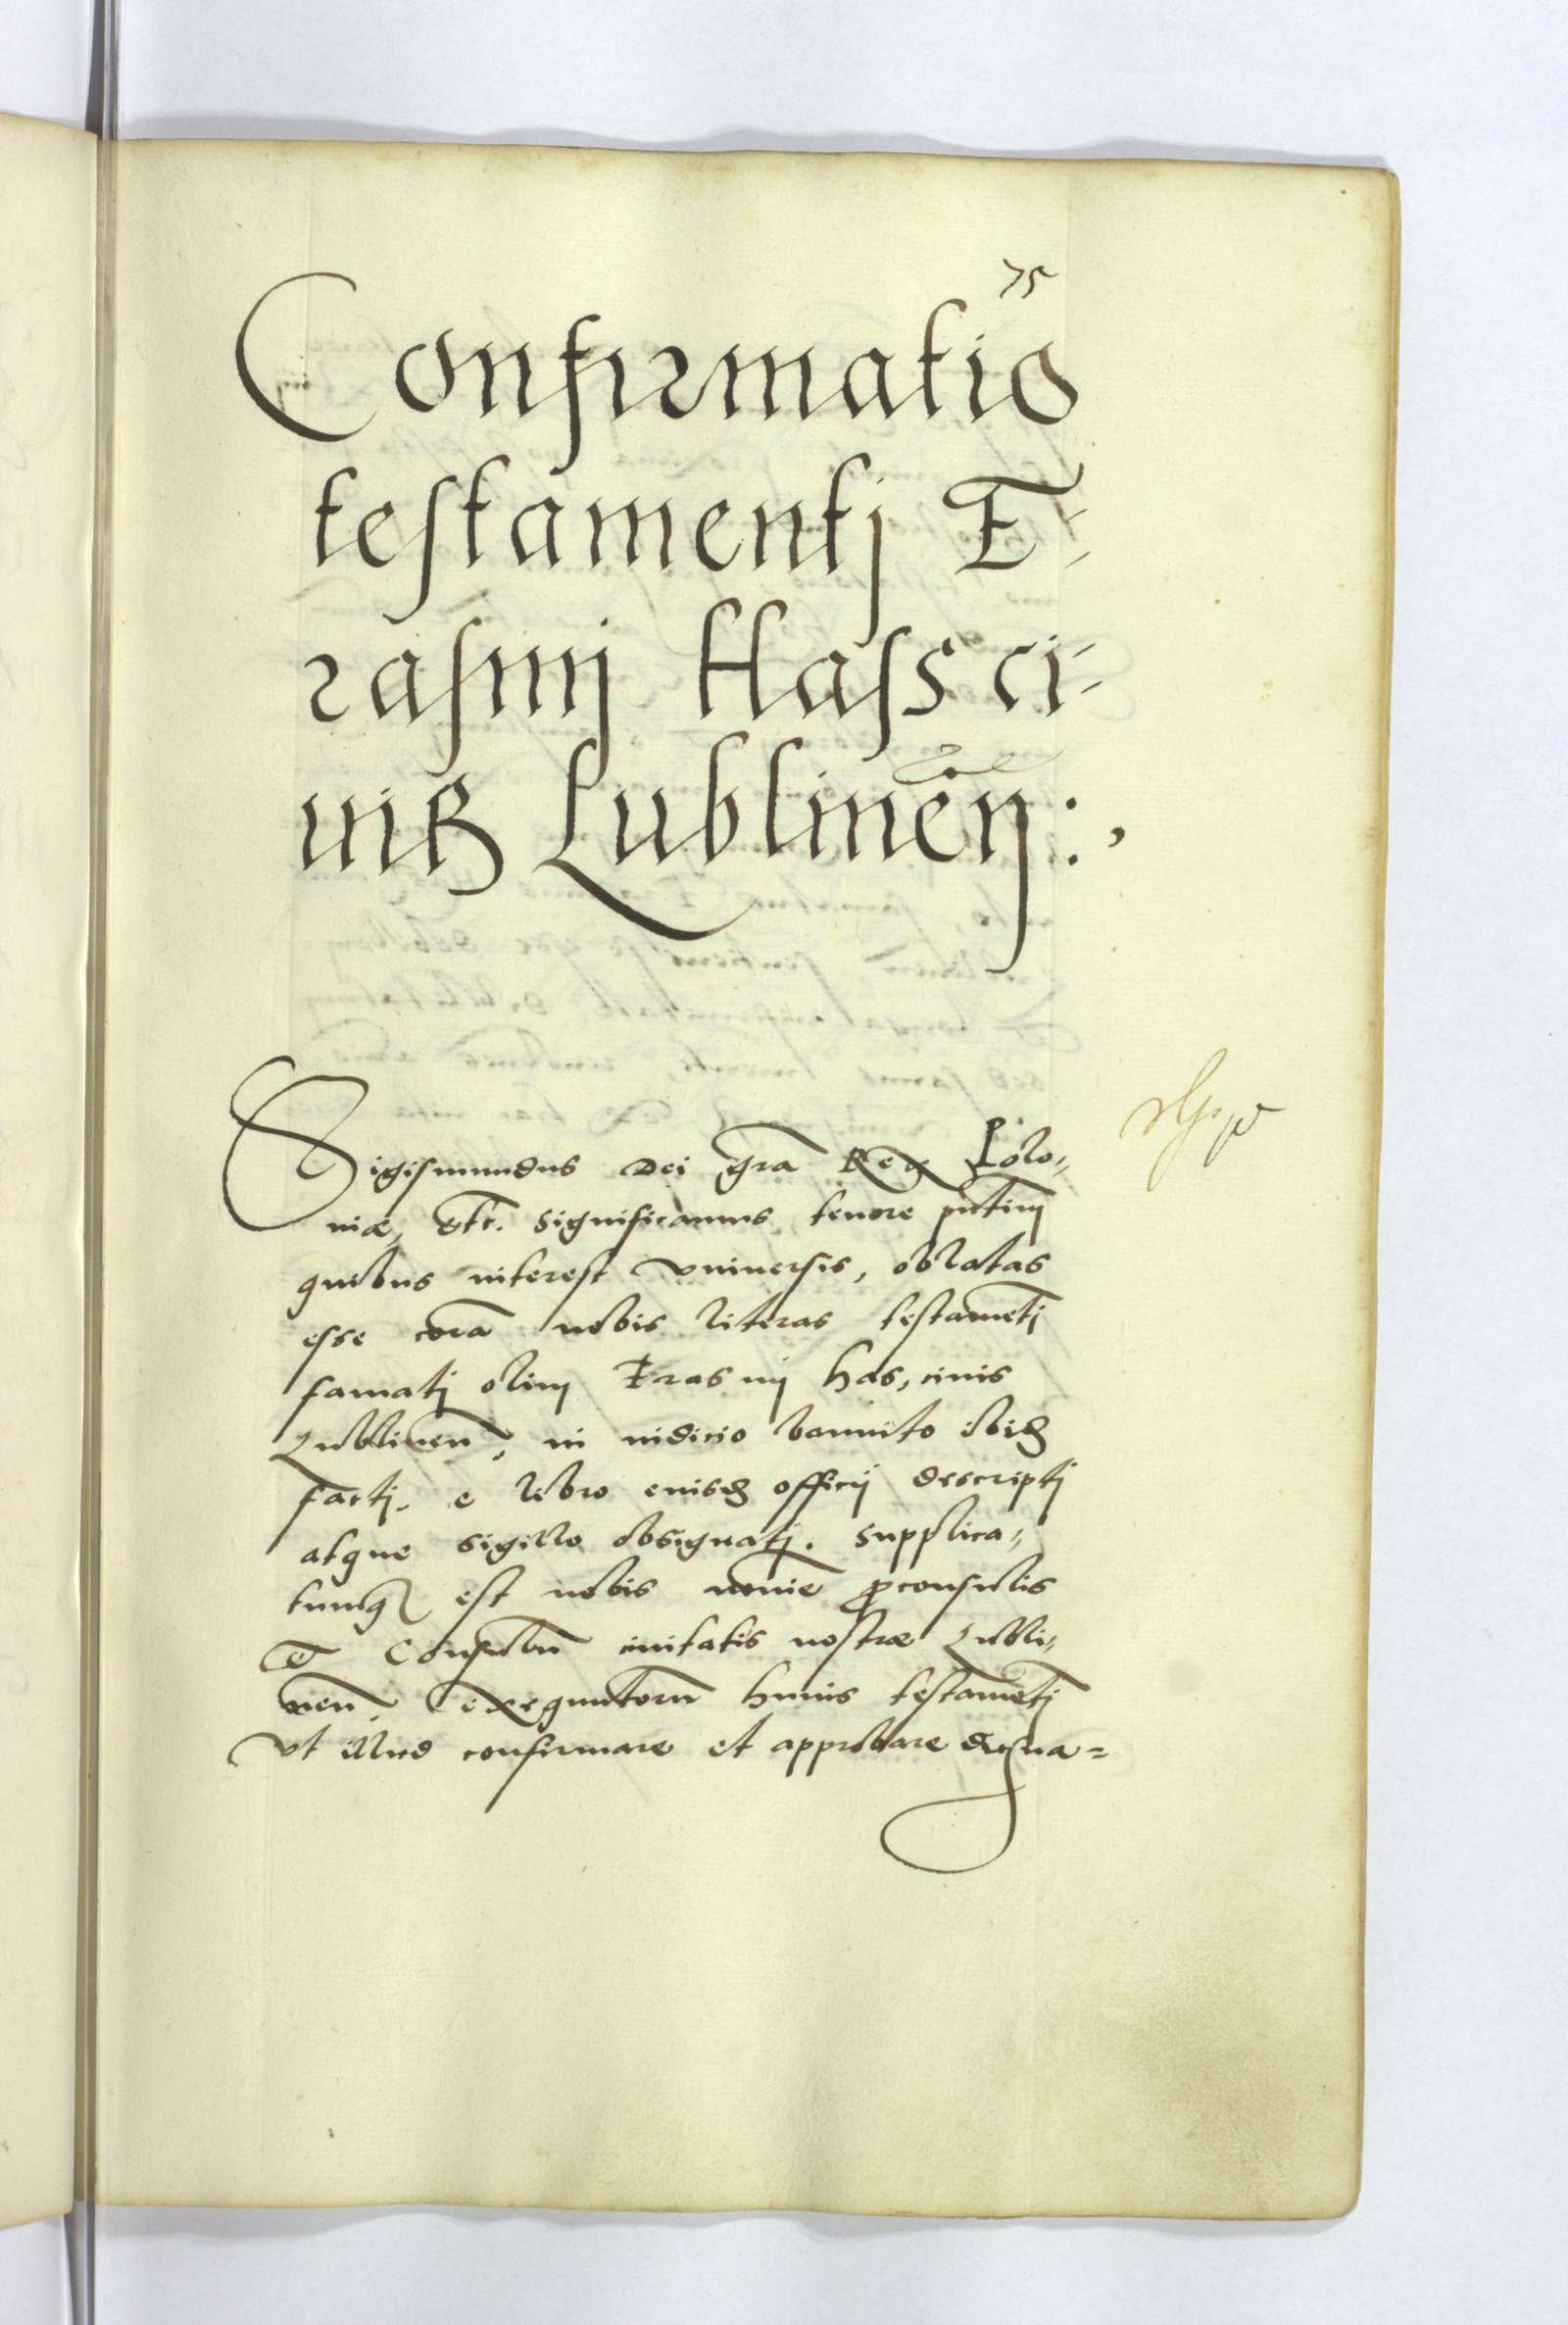 75
Confirmatio
testamentj E-
rasmj Hass ci-
uiß Lublineñ:,
Sigismundus Dei gra͂ Rex Polo-
niæ, etc. Significamus tenore pn͂tium
quibus interest vniuersis, oblatas
esse cora͂ nobis literas testame͂tj
famatj olim Erasmj Has, ciuis
Lublinen͂, in iudicio bannito ibidꝫ
factj, e libro eiusdꝫ officij descriptj
atque sigillo obsignatj. Supplica-
tumqꝫ est nobis no͂ie ꝓconsulis
et Consulu͂ ciuitatis nostræ Lubli-
nen͂, exequutoru͂ huius testame͂tj
vt illud confirmare et approbare digna=